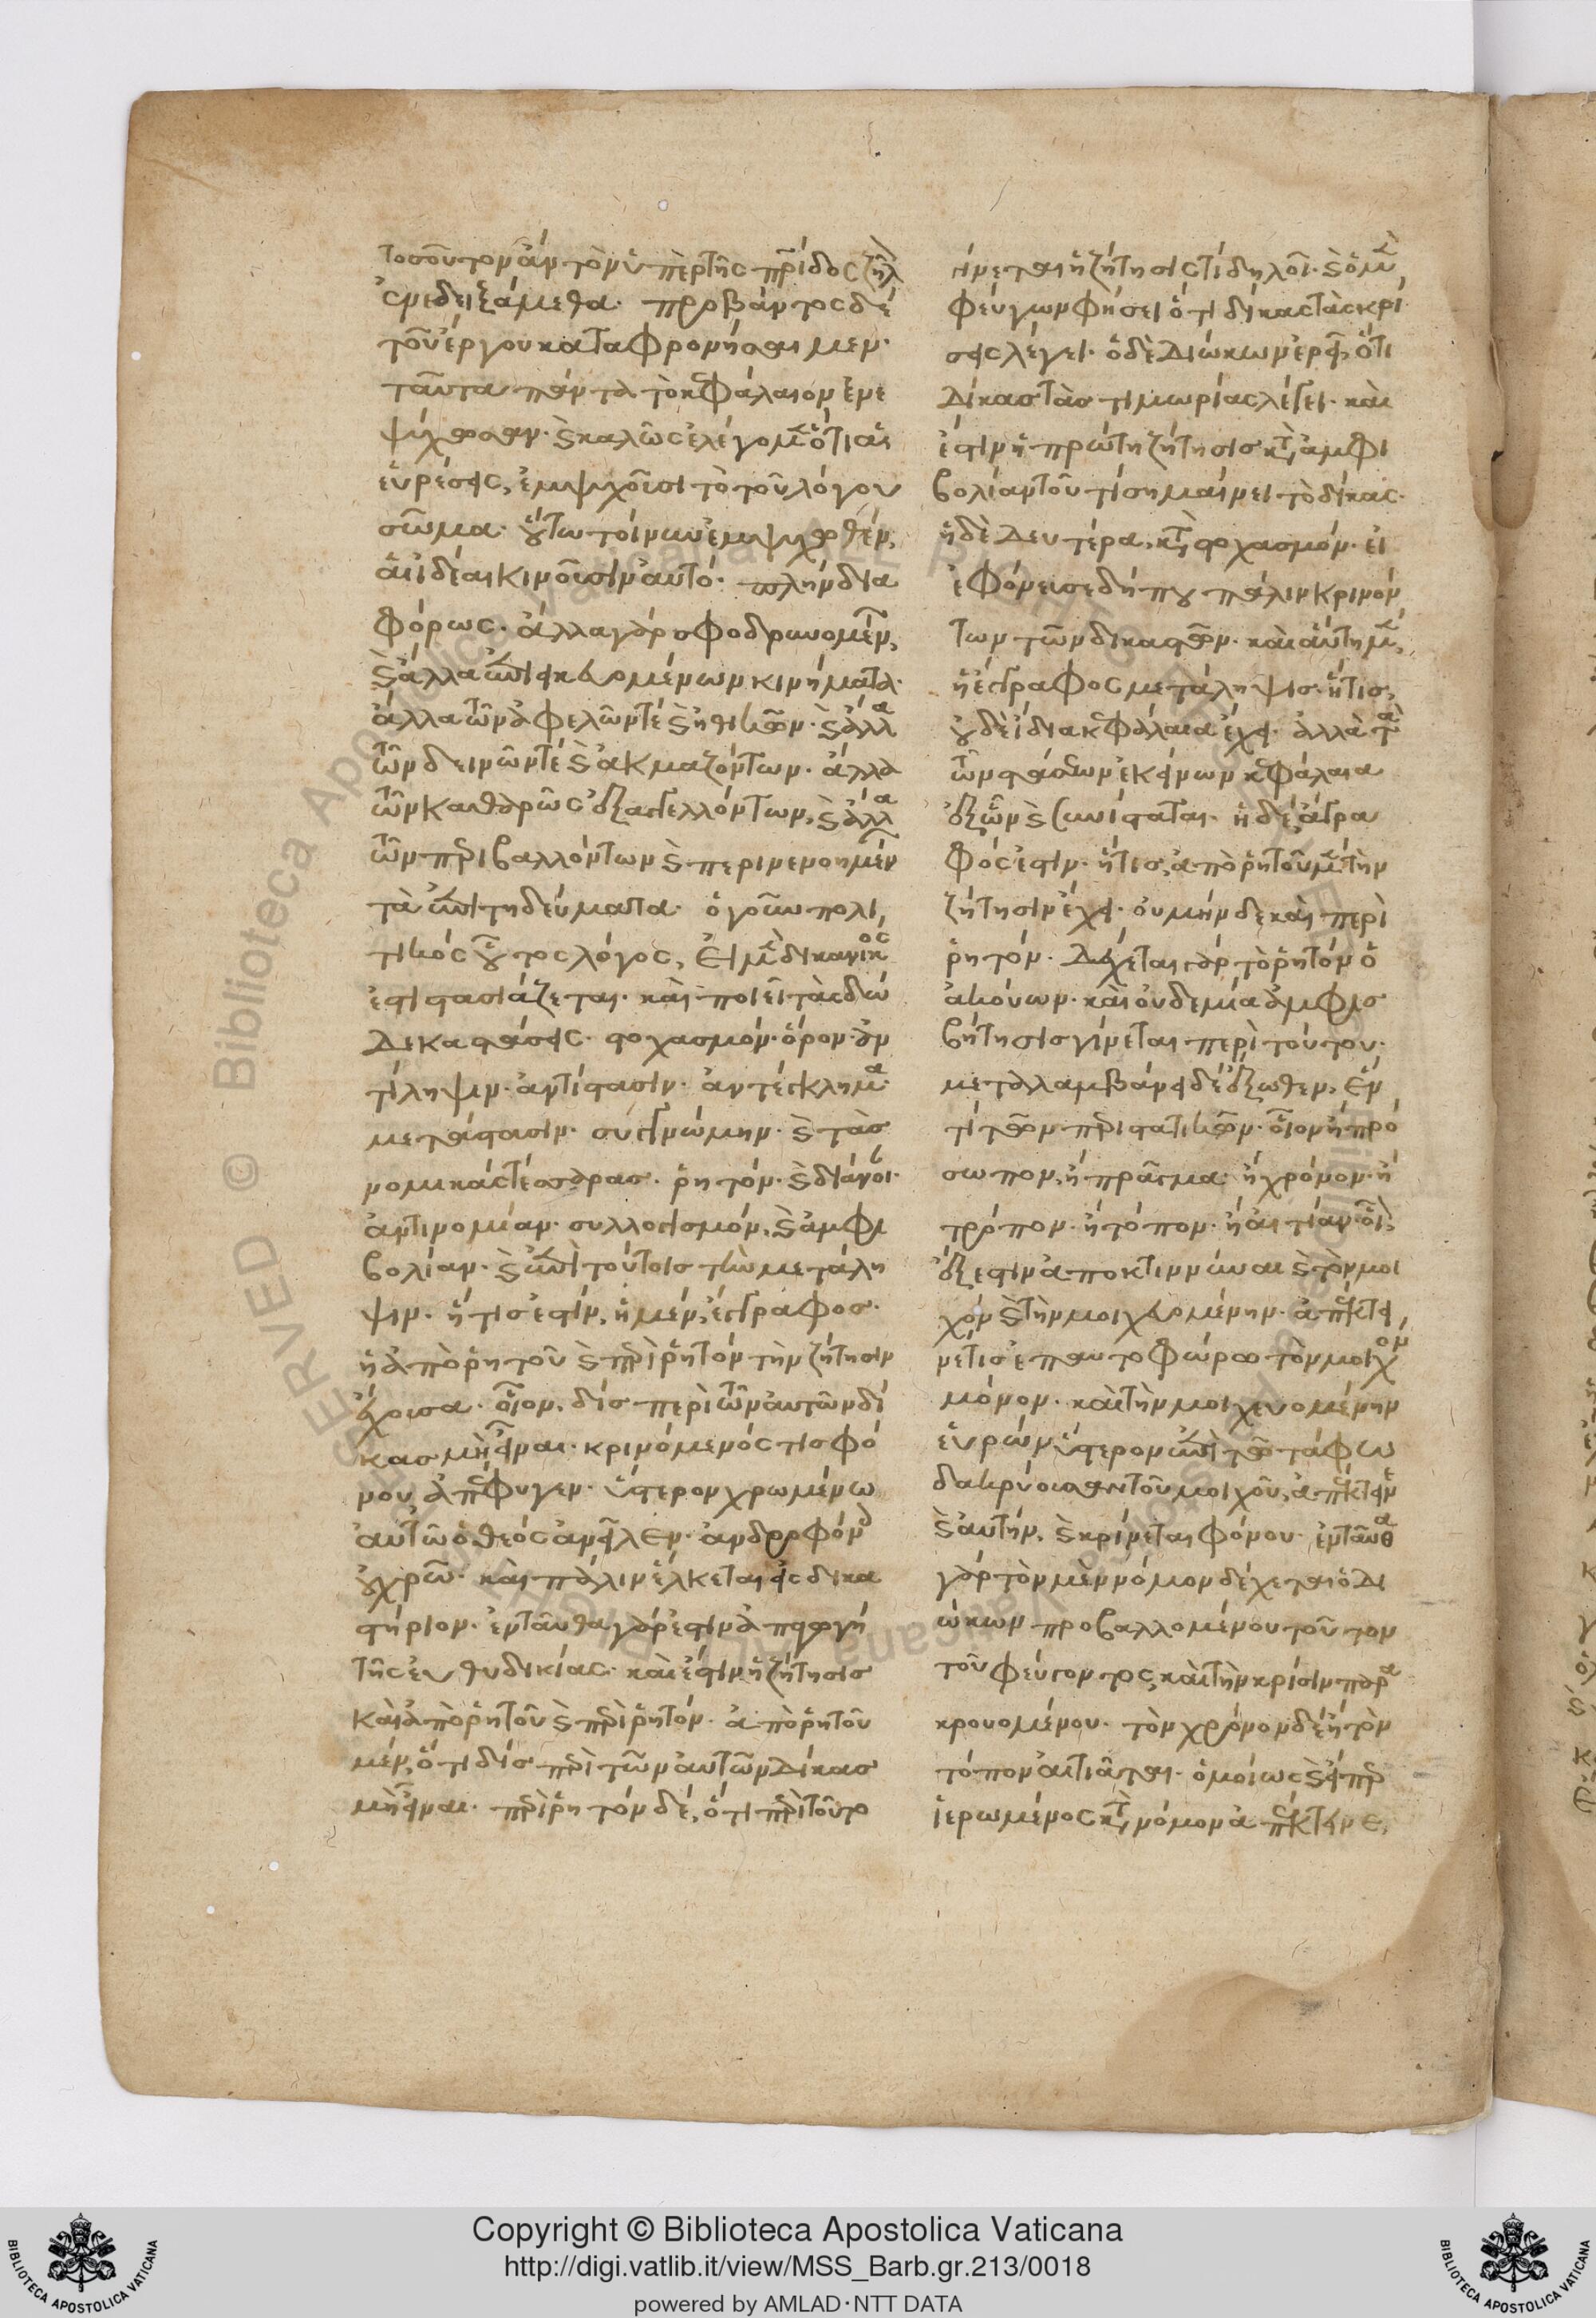 τοσοῦτον ἂν τὸν ὑπὲρ τῆς πρίδος ζῆλ
ἐνεδειξάμεθα. προβάντος δὲ
τοῦ ἔργου καταφρονῆσαι μεν.
ταῦτα πάντα τὸ κεφάλαιον ἐνε
ψύχωσαν. καὶ καλῶς ἐλέγομεν ὅτι αἱ
εὑρέσεις, ἐμψυχοῦσι τὸ τοῦ λόγου
σῶμα. οὕτω τοίνυν ἐμψυχωθέν,
αἱ ἰδέαι κινοῦσιν αὐτό. πλὴν δια
φόρως. ἄλλα γὰρ σφοδρυνομέν,
καὶ ἄλλα
ἄλλα τῶν ἀφελῶν τε καὶ ἠθικῶν. καὶ ἄλλα
τῶν δεινῶν τε καὶ ἀκμαζόντων. ἄλλα
τῶν καθαρῶς ἐξαγγελλόντων, καὶ ἄλλα
τῶν περιβαλλόντων καὶ περινενοημέν
τὰ ἐπιτηδεύματα. ὁ γοῦν πολι
τικὸς οὗτος λόγος, εἰ μὲν δικανικος
ἐστι στασιάζεται. καὶ ποιεῖ τὰς δώ
δεκα στάσεις. στοχασμόν. ὅρον. ἀν
τίληψιν. ἀντίστασιν. ἀντέγκλημα.
μετάστασιν. συγγνώμην. καὶ τὰς
νομικὰς τέσσαρας. ῥητόν. καὶ διάνοι.
ἀντινομίαν. συλλογισμόν, καὶ ἀμφι
βολίαν. καὶ ἐπὶ τούτοις τὴν μετάλη
ψιν. ἥτις ἐστίν, ἡ μέν, ἔγγραφος.
ἡ ἀπὸ ῥητοῦ καὶ περὶ ῥητὸν τὴν ζήτησιν
ἔχουσα. οἷον, δὶς περὶ τῶν αὐτῶν δί
κας μὴ εἶναι. κρινόμενός τις φό
νου, ἀπέφυγεν. ὕστερον χρωμένω
αὐτῶ ὁ θεὸς ἀνεῖλεν. ἀνδροφόν
οὐ χρῶ. καὶ πάλιν ἕλκεται εἰς δικα
στήριον. ἐνταῦθα γάρ ἐστιν ἀπαγωγὴ
τῆς εὐθυδικίας. καὶ ἔστιν ἡ ζήτησις
καὶ ἀπὸ ῥητοῦ καὶ περὶ ῥητόν. ἀπὸ ῥητοῦ
μέν, ὅτι δὶς περὶ τῶν αὐτῶν δίκας
μὴ εἶναι. περὶ ῥητὸν δέ, ὅτι περὶ τοῦτο
γίνεται ἡ ζήτησις τί δηλοῖ. καὶ ὁ μὲν
φεύγων φήσει ὅτι δίκας τὰς κρί
σεις λέγει. ὁ δὲ διώκων ἐρεῖ, ὅτι
δίκας τὰς τιμωρίας λέγει. καὶ
ἔστιν ἡ πρώτη ζήτησις κατὰ ἀμφι
βολίαν τοῦ τί σημαίνει τὸ δίκας.
ἡ δὲ δευτέρα, κατὰ στοχασμόν. εἰ
ἐφόνευσε δή που πάλιν κρινόν
των τῶν δικαστῶν. καὶ αὕτη μὲν,
ἡ ἔγγραφος μετάληψις. ἥτις,
οὐδὲ ἴδια κεφάλαια ἔχει. ἀλλὰ τὰ
τῶν στάσεων ἐκείνων κεφάλαια
ἐξ ὧν καὶ συνίσταται. ἡ δέ, ἄγρα
φός ἐστιν. ἥτις, ἀπὸ ῥητοῦ μὲν τὴν
ζήτησιν ἔχει. οὐ μὴν δὲ καὶ περὶ
ῥητόν. δέχεται γὰρ τὸ ῥητὸν ὁ
ἀκούων. καὶ οὐδεμία ἀμφισ
βήτησις γίνεται περὶ τούτου.
μεταλαμβάνει δὲ ἔξωθεν, ἕν
τι τῶν περιστατικῶν. οἷον ἢ πρό
σωπον, ἢ πρᾶγμα. ἢ χρόνον. ἢ
τρόπον. ἢ τόπον. ἢ αἰτίαν. οἷον,
ἔξεστιν ἀποκτιννύναι καὶ τὸν μοι
χὸν καὶ τὴν μοιχευομένην. ἀπέκτει
νέ τις ἐπ' αυτοφώρω τὸν μοιχὸν
μόνον. καὶ τὴν μοιχευομένην
εὑρὼν ὕστερον ἐπὶ τῶ τάφω
δακρύουσαν τοῦ μοιχοῦ, ἀπέκτεινε
καὶ αὐτήν, καὶ κρίνεται φόνου. ἐνταῦθα
γὰρ τὸν μὲν νόμον δέχεται ὁ δι
ώκων προβαλλομένου τοῦτον
τοῦ φεύγοντος, καὶ τὴν κρίσιν παρα
κρουομένου. τὸν χρόνον δὲ ἢ τὸν
τόπον αἰτιᾶται. ὁμοίως καὶ εἴπερ
ἱερωμένος κατὰ νόμον ἀπέκτεινε,
Copyright © Biblioteca Apostolica Vaticana
http://digi.vatlib.it/view/MSS_Barb.gr.213/0018
powered by AMLAD·NTT DATA